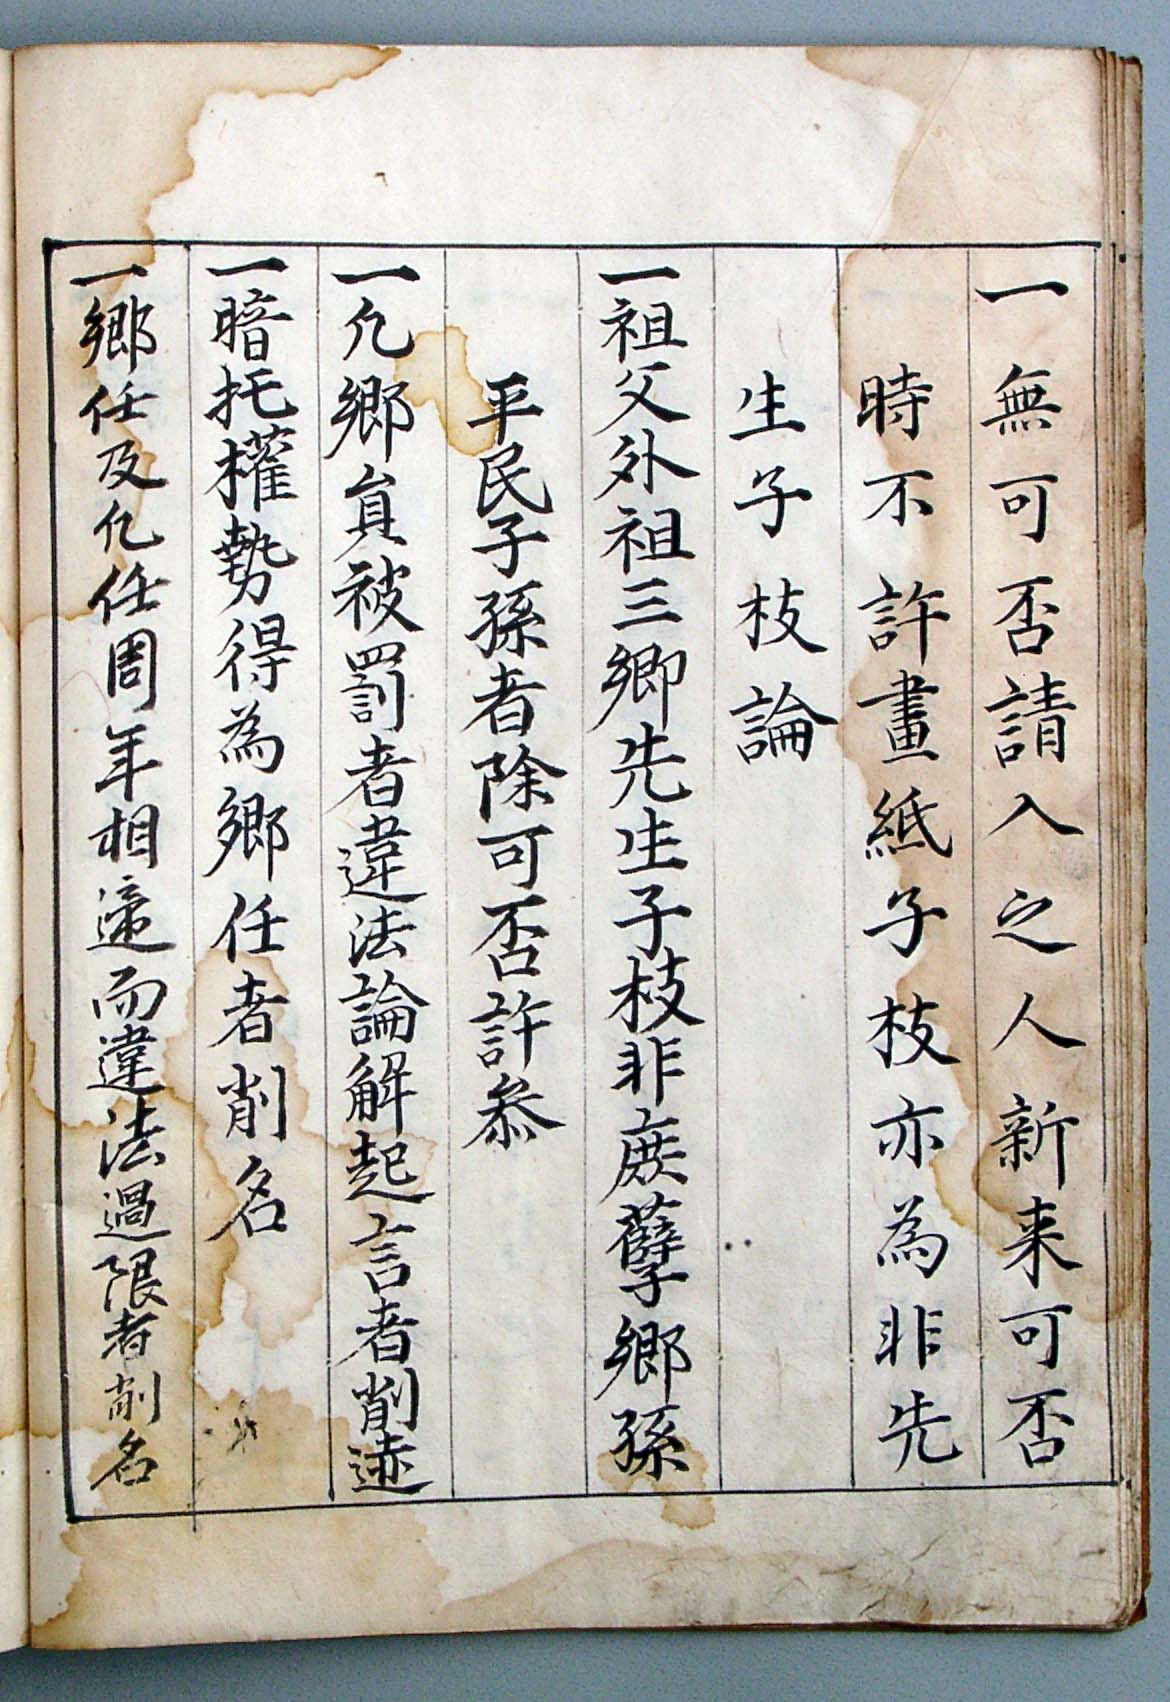 一無可否請入之人新来可否
時不許畫紙子枝亦為非先
生子枝論
一祖父外祖三鄉先生子枝非庶孽鄉孫
平民子孫者除可否許叅
一凢鄉員被罰者違法論解起言者削迹
一暗托權勢得為鄉任者削名
一鄉任及凢任周年相遆而違法過限者削名